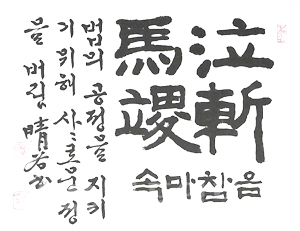 泣斬
馬謖
읍참마속
법의 공정을 지키
기위해 사〻로운 정
을 버림